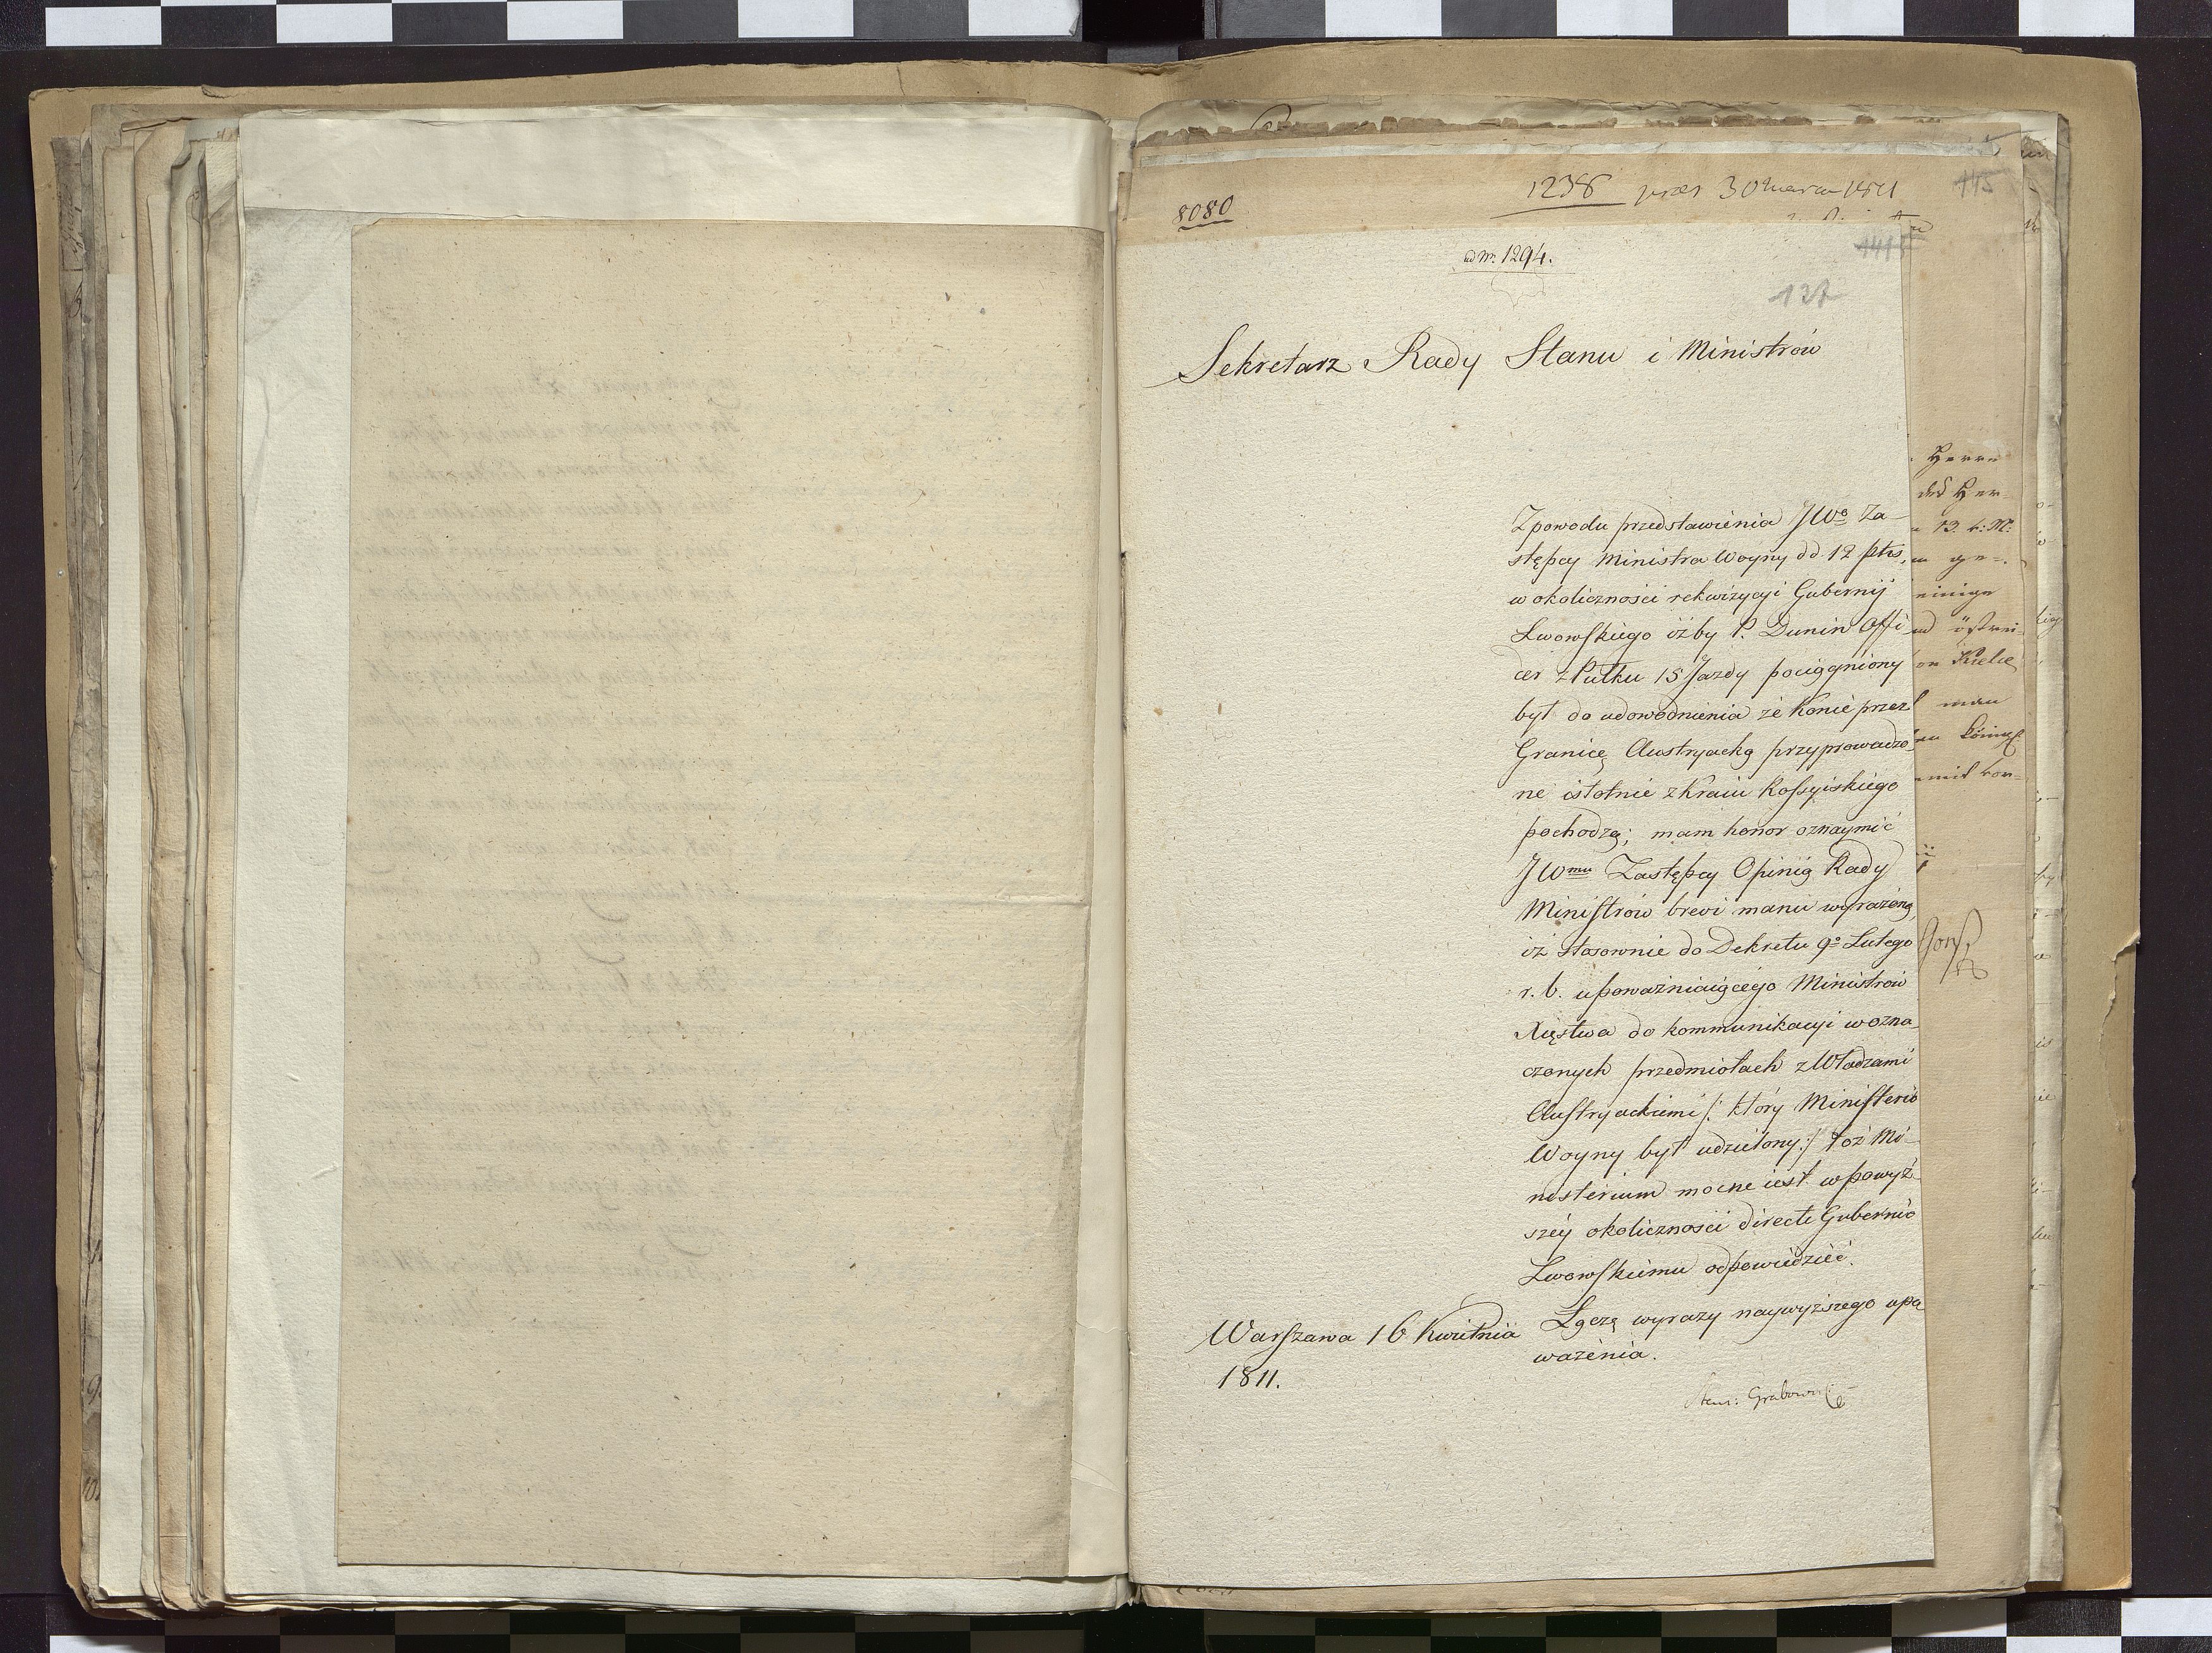 8080
1238 przez 30 Marca 1811
115
ad Nr. 1294.
127
Sekretarz Rady Stanu i Ministrów
Z powodu przedstawienia JWo Za-
stępcy Ministra Woyny dd. 12 pteris
w okoliczności rekwizycyi Gubernij
Lwowskiego iżby P. Dunin Offi
cer z Pułku 15 Jazdy pociągniony
był do udowodnienia że Konie przez
Granicę Austryacką przyprowadzo-
ne istotnie z Kraiu Rossyiskiego
pochodzą; mam honor oznaymić
JWmu Zastępcy Opinią Rady
Ministrów brevi manu wyrażoną,
iż stosownie do Dekretu 9o Lutego
r. b. upoważniaiącego Ministrów
Xięstwa do kommunikacyi w ozna-
czonych przedmiotach z Władzami
Austryackiemi /: który Ministerio
Woyny był udzielony :/ toż Mi-
nisterium mocne iest w powyż-
széy okoliczności directe Gubernio
Lwowskiemu odpowiedzieć.
Łączę wyrazy naywyższego upo
ważenia.
Warszawa 16 Kwietnia
1811.
Stan: Grabowski
Herrn
des Her-
13. v: M:
ge-
einige
östrei-
von Kielce
man
König
mit vor-